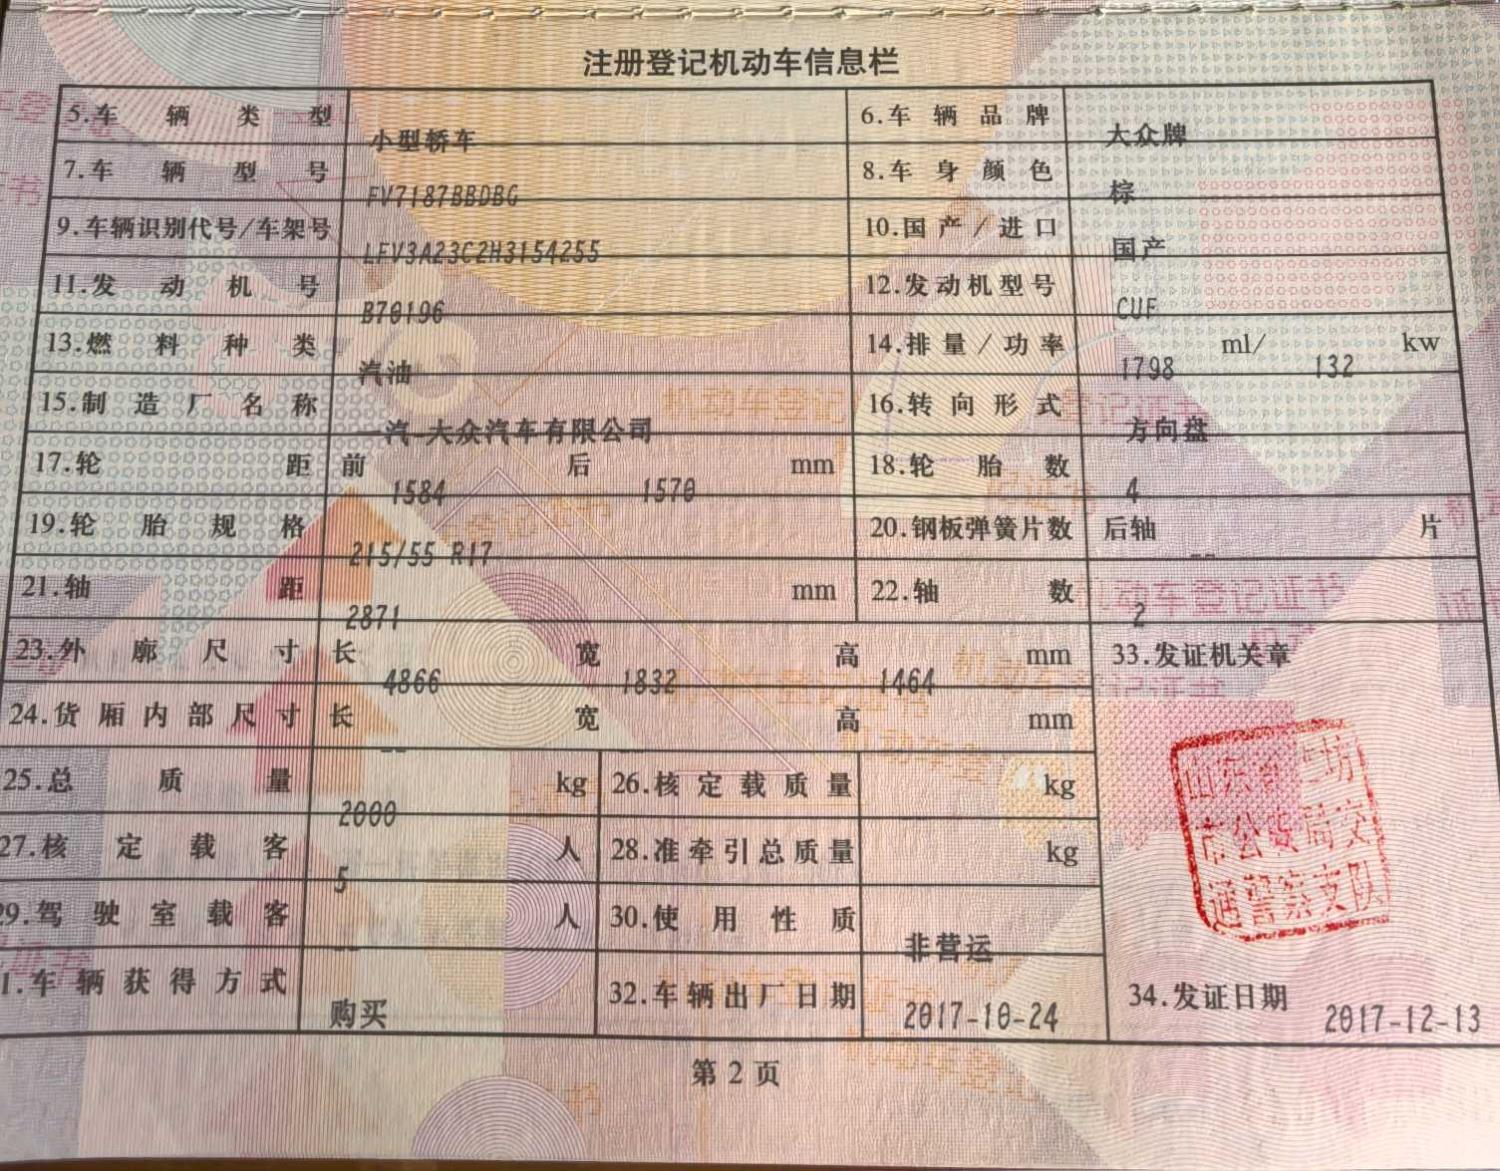 注册登记机动车信息栏
5.车辆类型 小型轿车 6.车辆品牌 大众牌
7.车辆型号 FV7187BBDBG 8.车身颜色 棕
9.车辆识别代号/车架号 LFV3A23C2H3154255 10.国产/进口 国产
11.发动机号 B70196 12.发动机型号 CUF
13.燃料种类 汽油 14.排量/功率 1798 ml/ 132 kw
15.制造厂名称 一汽-大众汽车有限公司 16.转向形式 方向盘
17.轮距 前 1584 后 1570 mm 18.轮胎数 4
19.轮胎规格 215/55 R17 20.钢板弹簧片数 后轴 -- 片
21.轴距 2871 mm 22.轴数 2
23.外廓尺寸 长 4866 宽 1832 高 1464 mm 33.发证机关章
24.货厢内部尺寸 长 -- 宽 高 mm
25.总质量 2000 kg 26.核定载质量 kg
27.核定载客 5 人 28.准牵引总质量 kg
29.驾驶室载客 -- 人 30.使用性质 非营运
1.车辆获得方式 购买 32.车辆出厂日期 2017-10-24 34.发证日期 2017-12-13
市公安局交
通警察支队
第2页